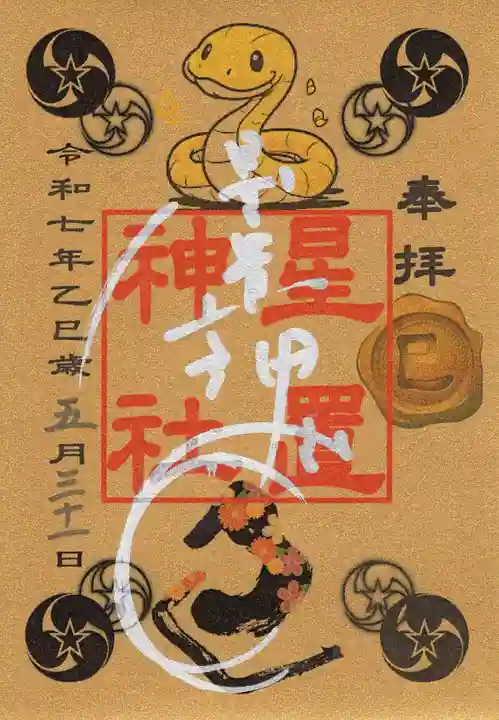 奉拝
巳
星置
神社
令和七年乙巳歳五月三十一日